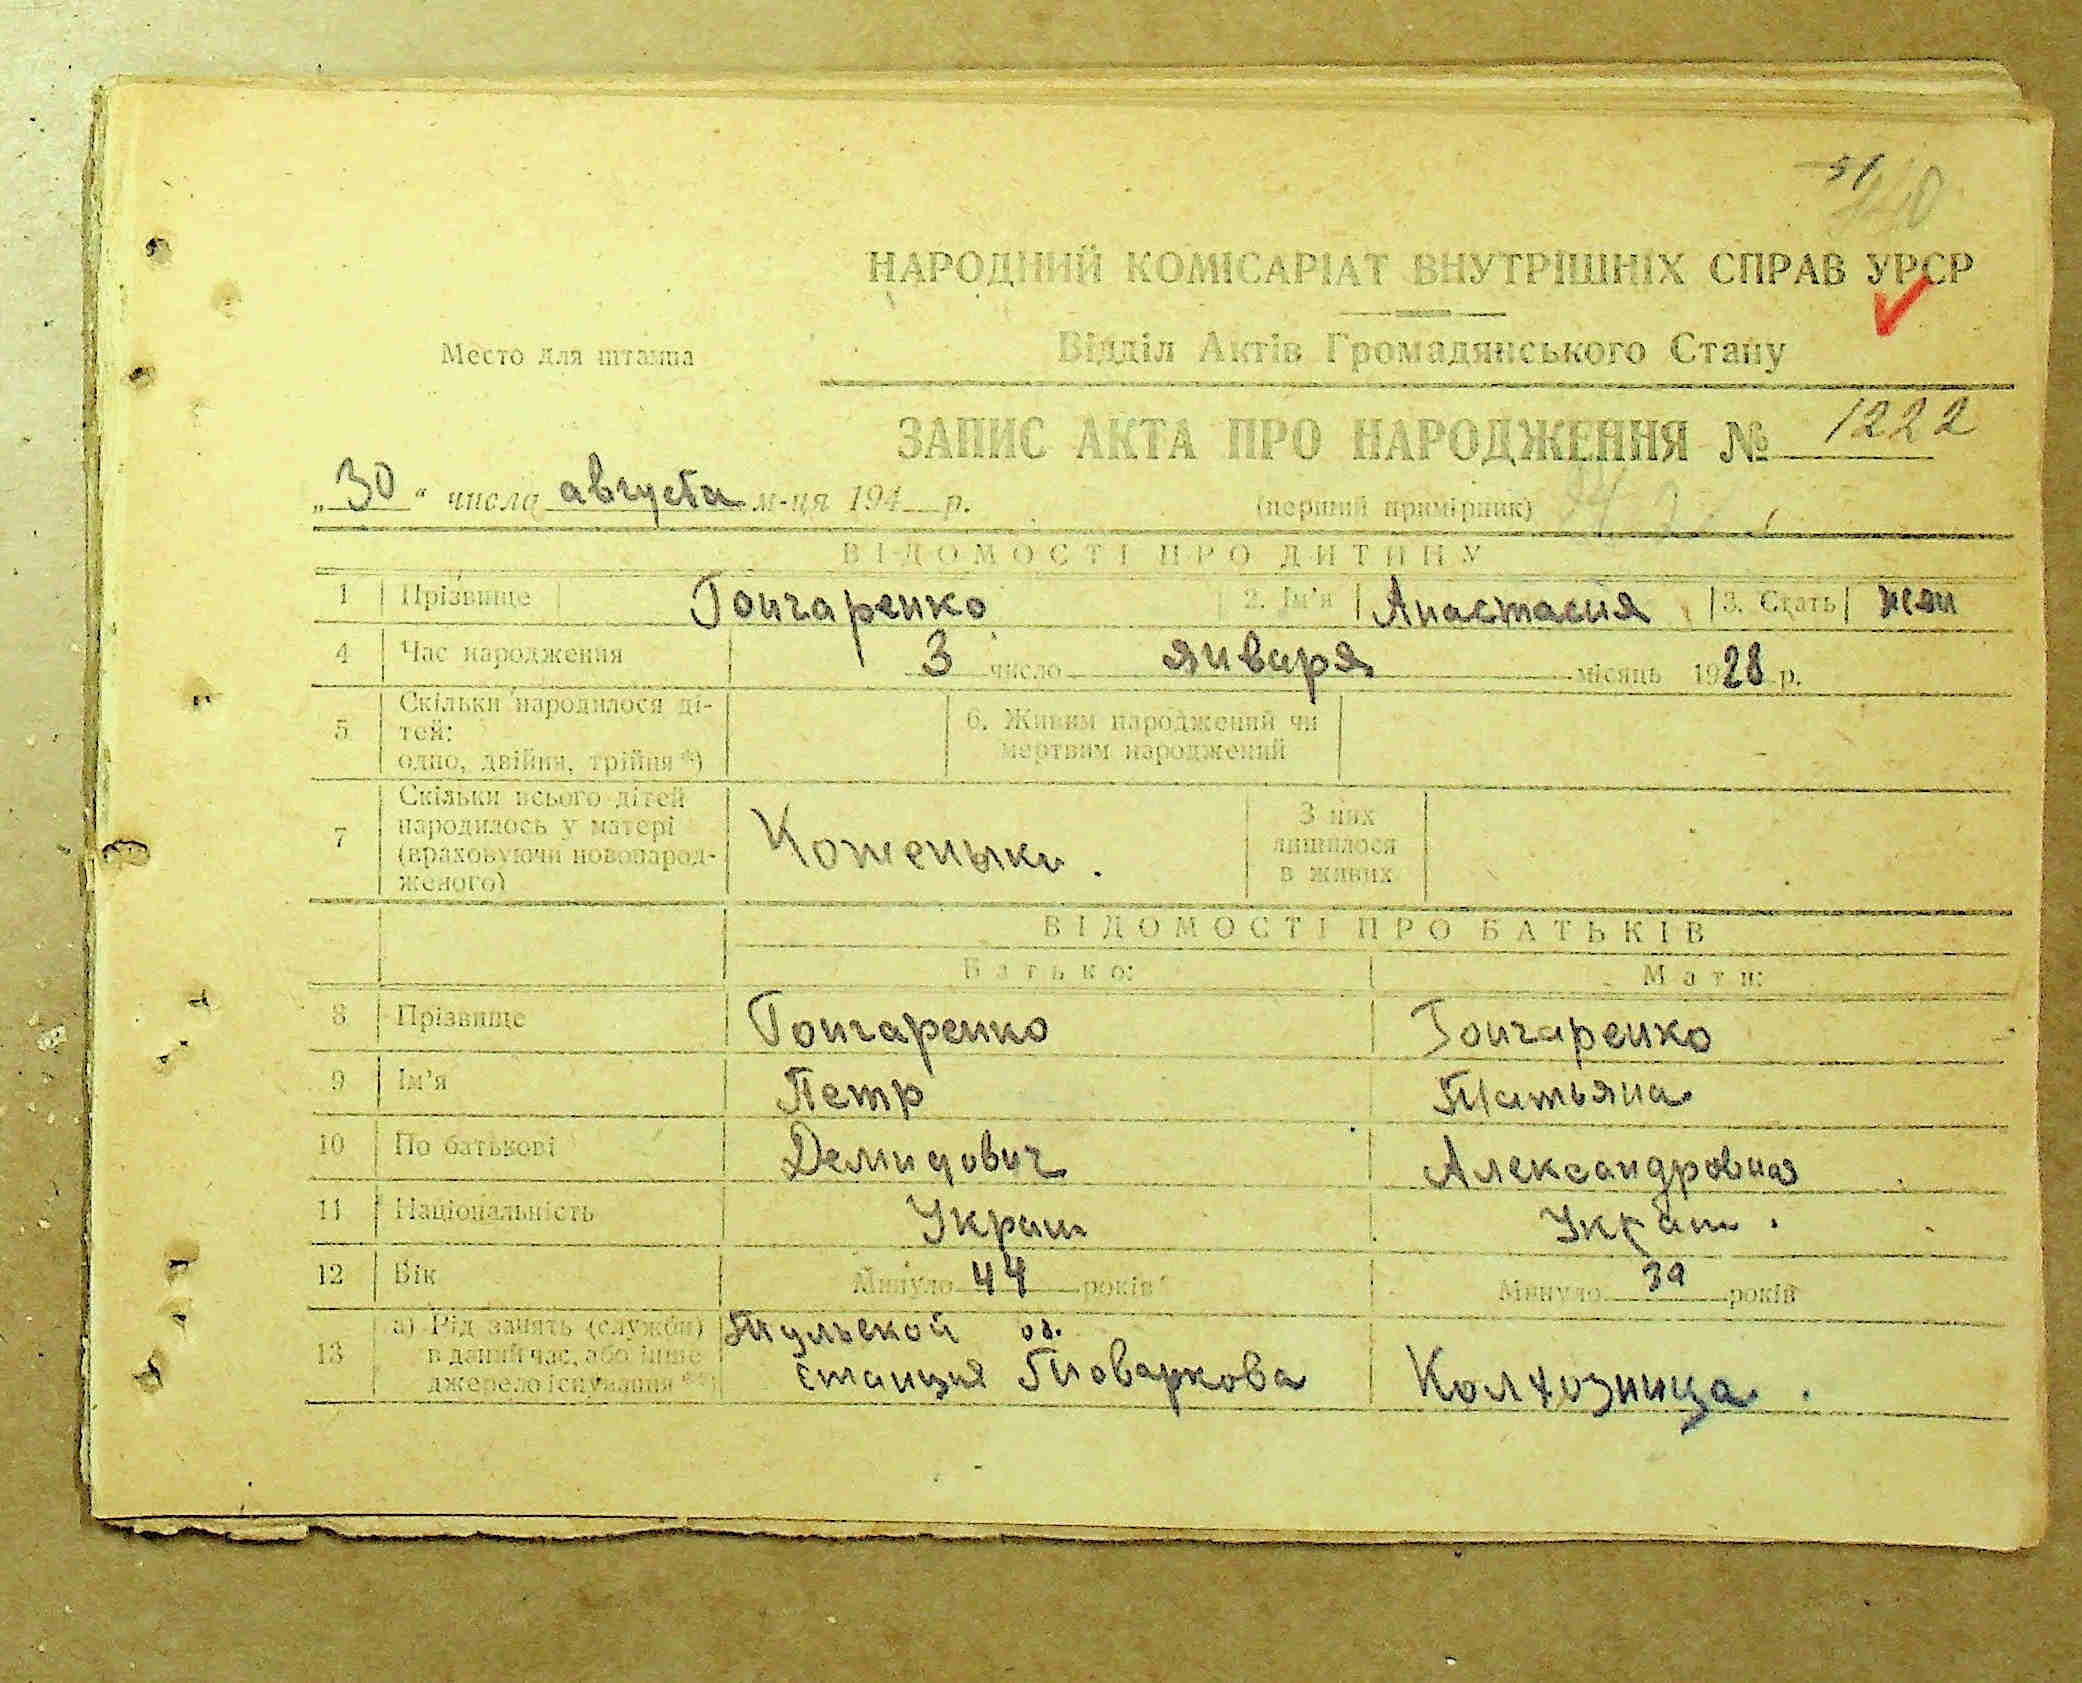 51
НАРОДНИЙ КОМІСАРІАТ ВНУТРІШНІХ СПРАВ УРСР
Место для штампа
Відділ Актів Громадянського Стану
ЗАПИС АКТА ПРО НАРОДЖЕННЯ № 1222
„30“ числа августа м-ця 194 р. (перший примірник)
ВІДОМОСТІ ПРО ДИТИНУ
1 Прізвище Гончаренко 2. Ім'я Анастасия 3. Стать жен
4 Час народження 3 число января місяць 1928 р.
5 Скільки народилося дітей: одно, двійня, трійня *) 6. Живим народжений чи мертвим народжений
7 Скільки всього дітей народилось у матері (враховуючи новонародженого) З них лишилося в живих
ВІДОМОСТІ ПРО БАТЬКІВ
Батько: Мати:
8 Прізвище Гончаренко Гончаренко
9 Ім'я Петр Татьяна
10 По батькові Демидович Александровна
11 Національність Украин Украин.
12 Вік Минуло 44 років Минуло 39 років
13 а) Рід занять (служби) в даний час, або інше джерело існування **) Тульской об. станция Товаркова Колхозница.